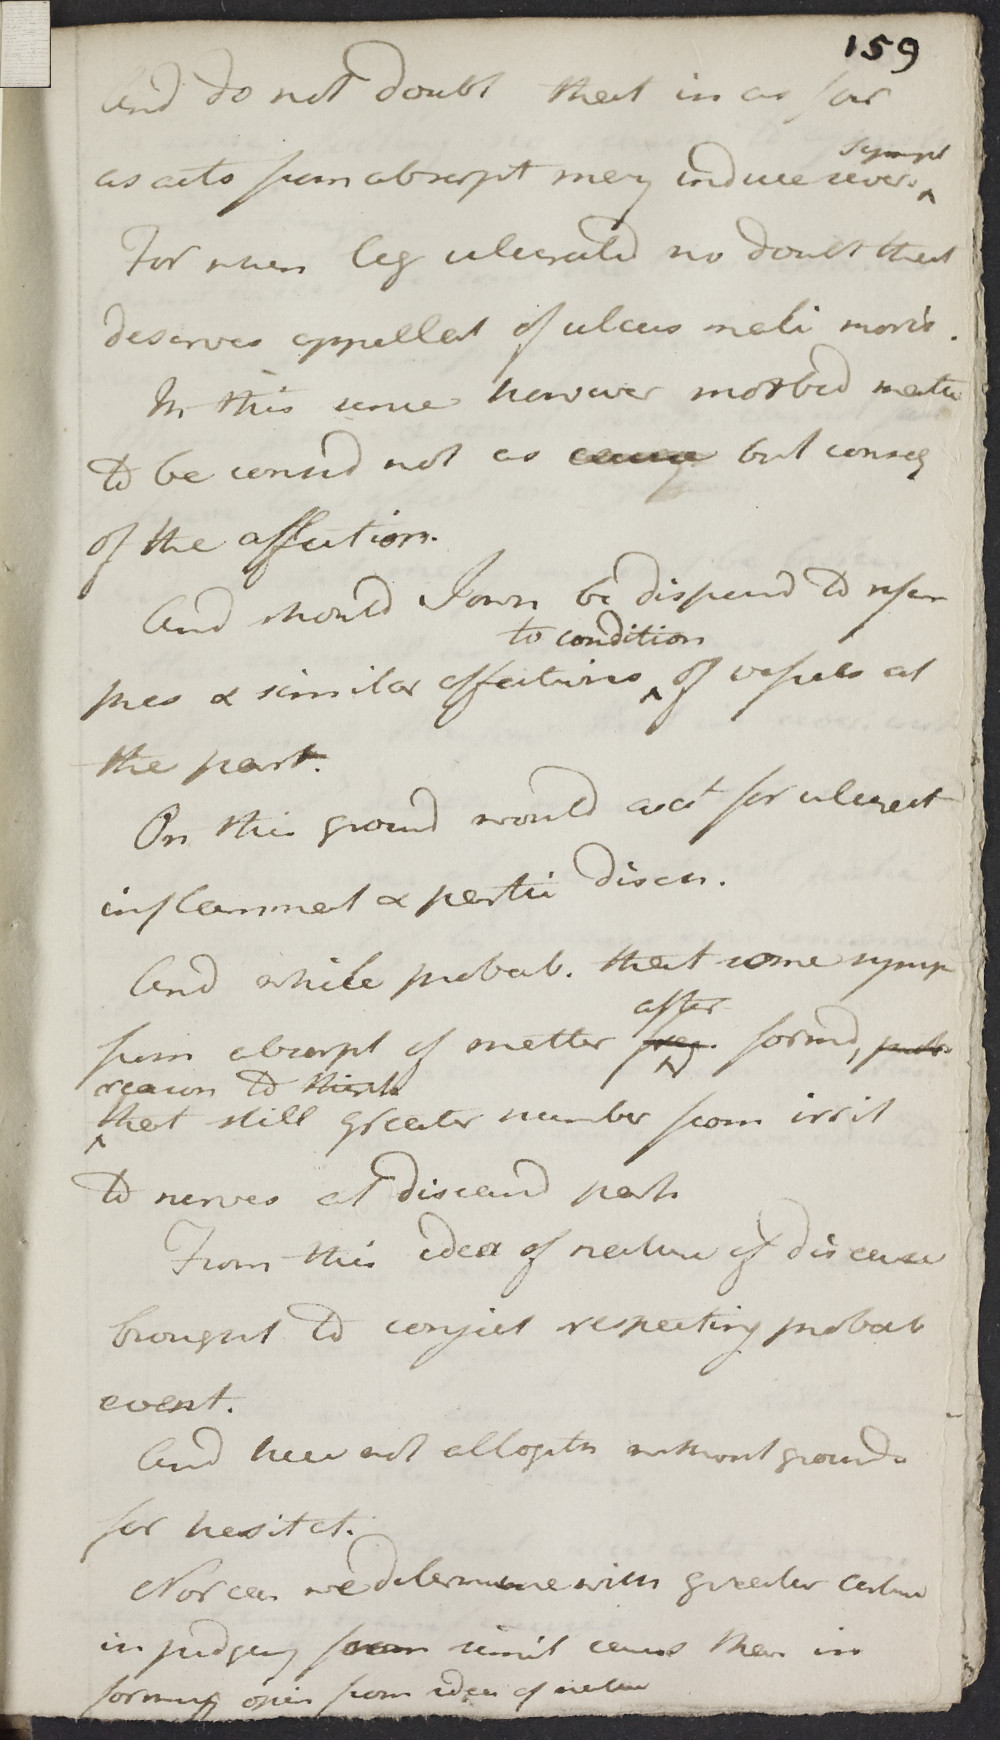 159
And do not doubt that in as far
sympt
as acts from absorpt may induce sever
For when leg ulcerated no doubt that
deserves appellat of ulcus mali moris.
In this sense however morbid matter
to be consid not as cause but conseq
of the affection.
And should I own be disposed to refer
to condition
this & similar affections of vessels at
the part.
On this ground would acct for ulcerat
inflammat & partic disch.
And while probab. that some symp
after
from absorpt of matter formd,
reason to think
that still greater number from irrit
to nerves at diseasd part
From this idea of nature of disease
brought to conject respecting probab
event.
And here not altogethr without grounds
for hesitat.
Nor can we determine with greater certain
in judging from simil cases than in
forming opin from idea of nature